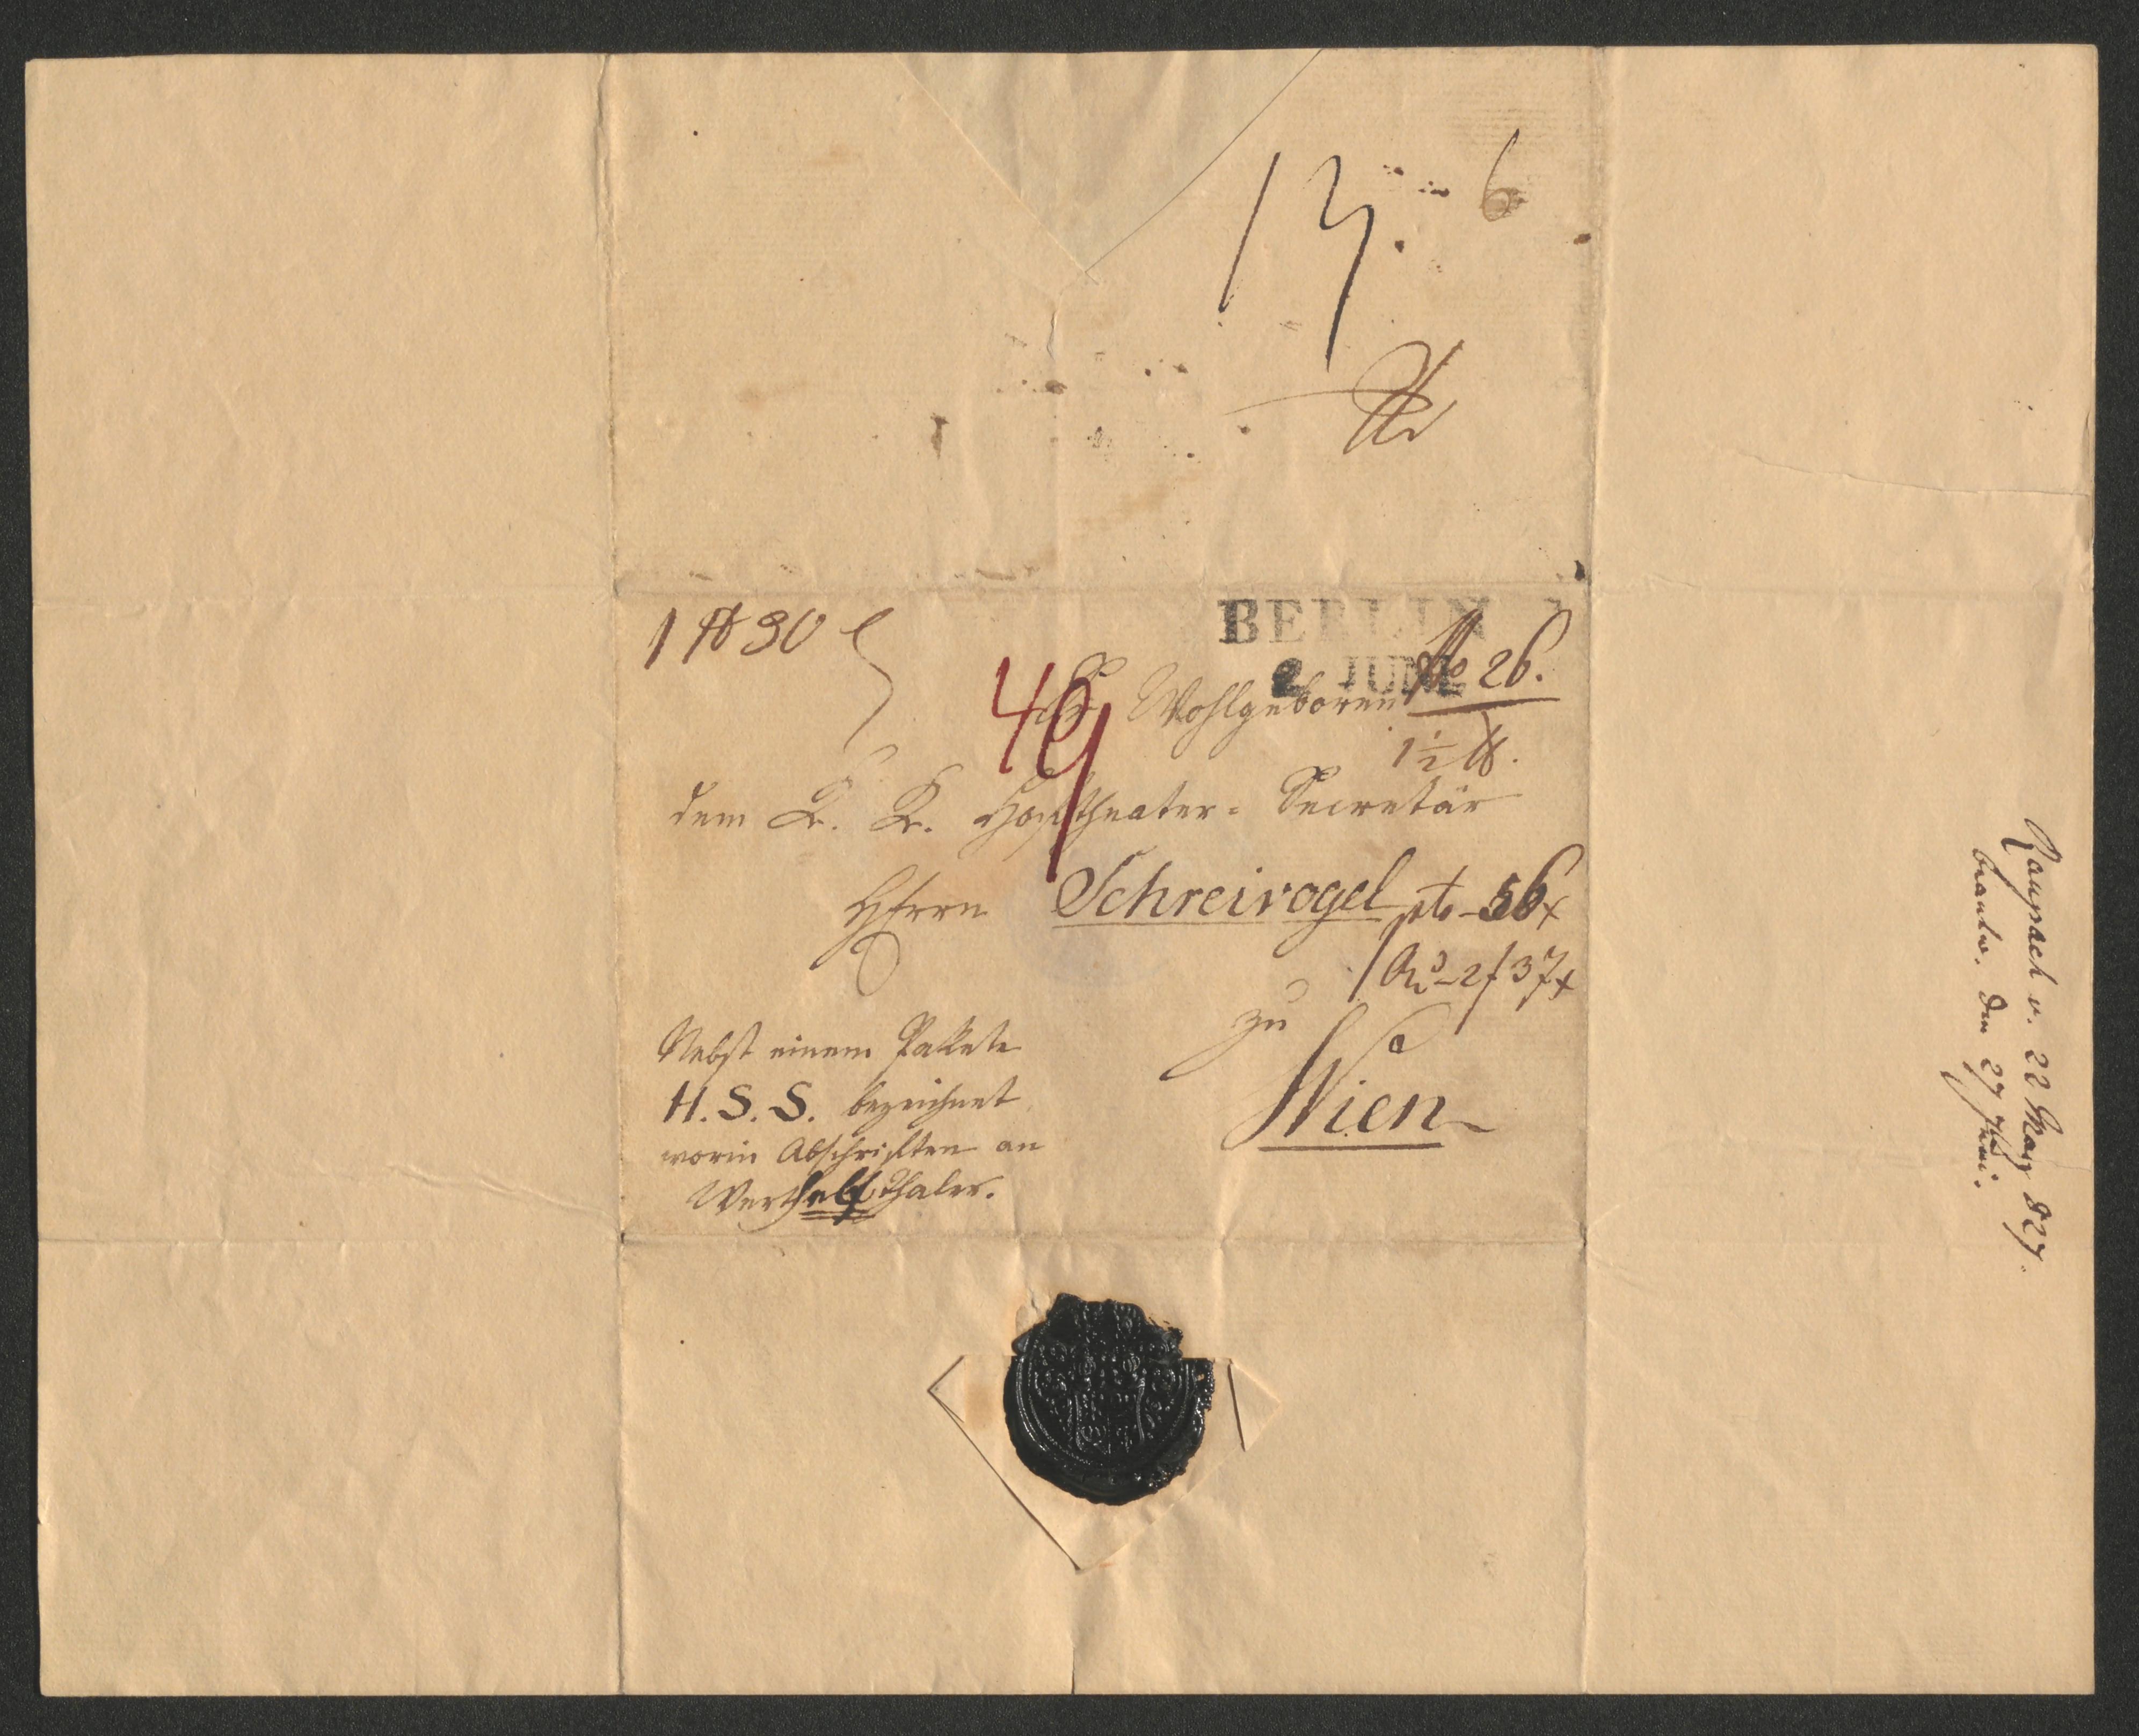 13. 6
1 ℔ 30
BERLIN
2 JUNE
No 26.
49
Sr Wohlgeboren
1½ ℔.
dem K. K. Hoftheater-Secretär
Herrn Schreivogel
pto - 56 x
2 f 37 x
zu
Wien
Nebst einem Pakete
H. S. S. bezeichnet
worin Abschriften an
Werth elf Thaler.
Raupach v. 22 May 827.
beantw. den 27 Juni.